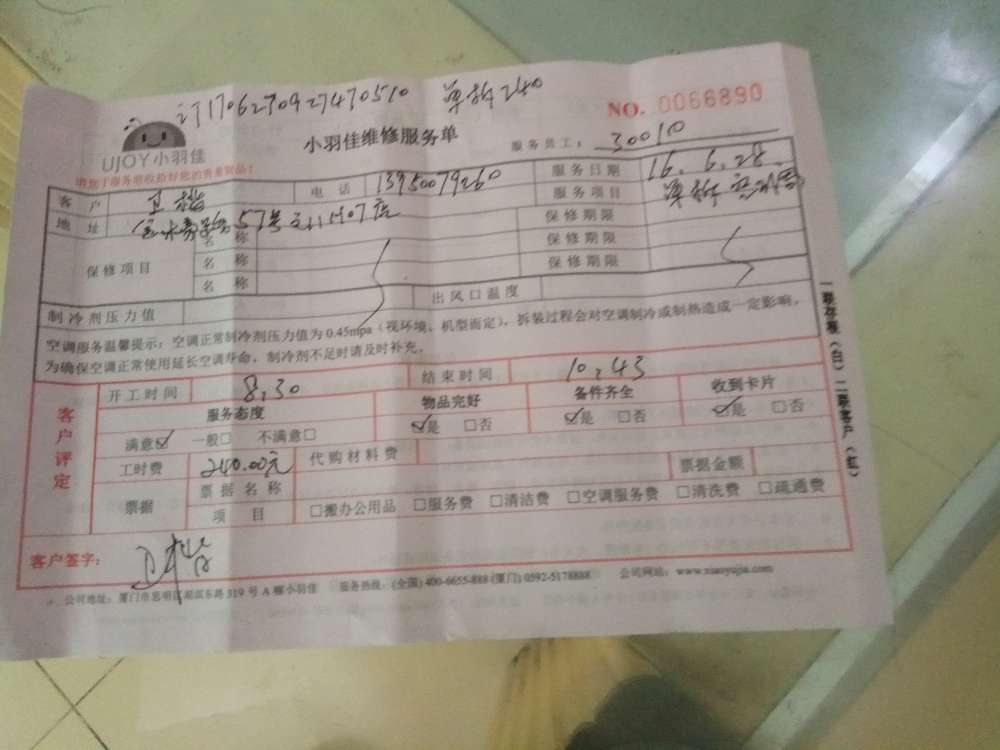 订1706270927470510 单拆240
NO. 0066890
UJOY小羽佳
小羽佳维修服务单
服务员工: 30010
请您于服务前收拾好您的贵重物品!
客户 卫 电话 13950079260 服务日期 16.6.28
地址 57号 1107店 服务项目 单拆
保修项目 名称 保修期限
名称 保修期限
名称 保修期限
制冷剂压力值 出风口温度
空调服务温馨提示:空调正常制冷剂压力值为0.45mpa(视环境、机型而定),拆装过程会对空调制冷或制热造成一定影响。
为确保空调正常使用延长空调寿命,制冷剂不足时请及时补充。
客户评定
开工时间 8.30 结束时间 10.43
服务态度 物品完好 备件齐全 收到卡片
满意☑ 一般□ 不满意□ ☑是 □否 ☑是 □否 ☑是 □否
工时费 240.00元 代购材料费 票据金额
票据 票据名称
项目 □搬办公用品 □服务费 □清洁费 □空调服务费 □清洗费 □疏通费
客户签字: 卫
公司地址:厦门市思明区湖滨东路319号A幢小羽佳 服务热线:(全国)400-6655-888(厦门)0592-5178888 公司网站:www.xiaoyujia.com
(白) 二联客户(红)